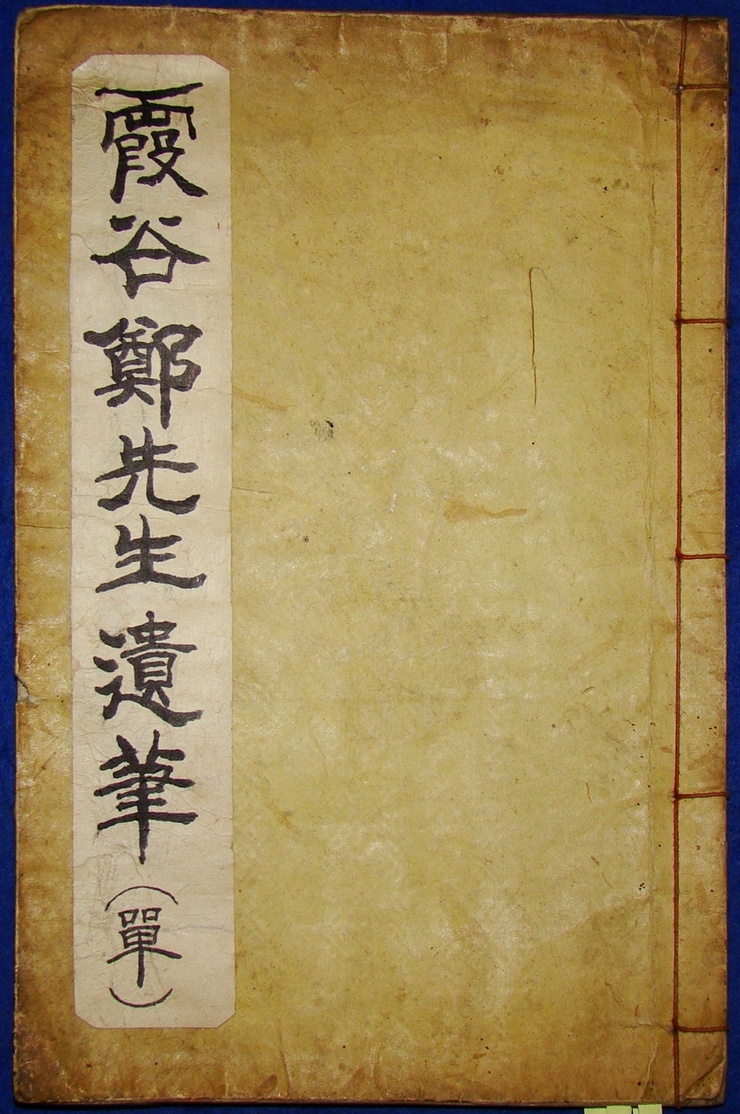 霞谷鄭先生遺筆(單)